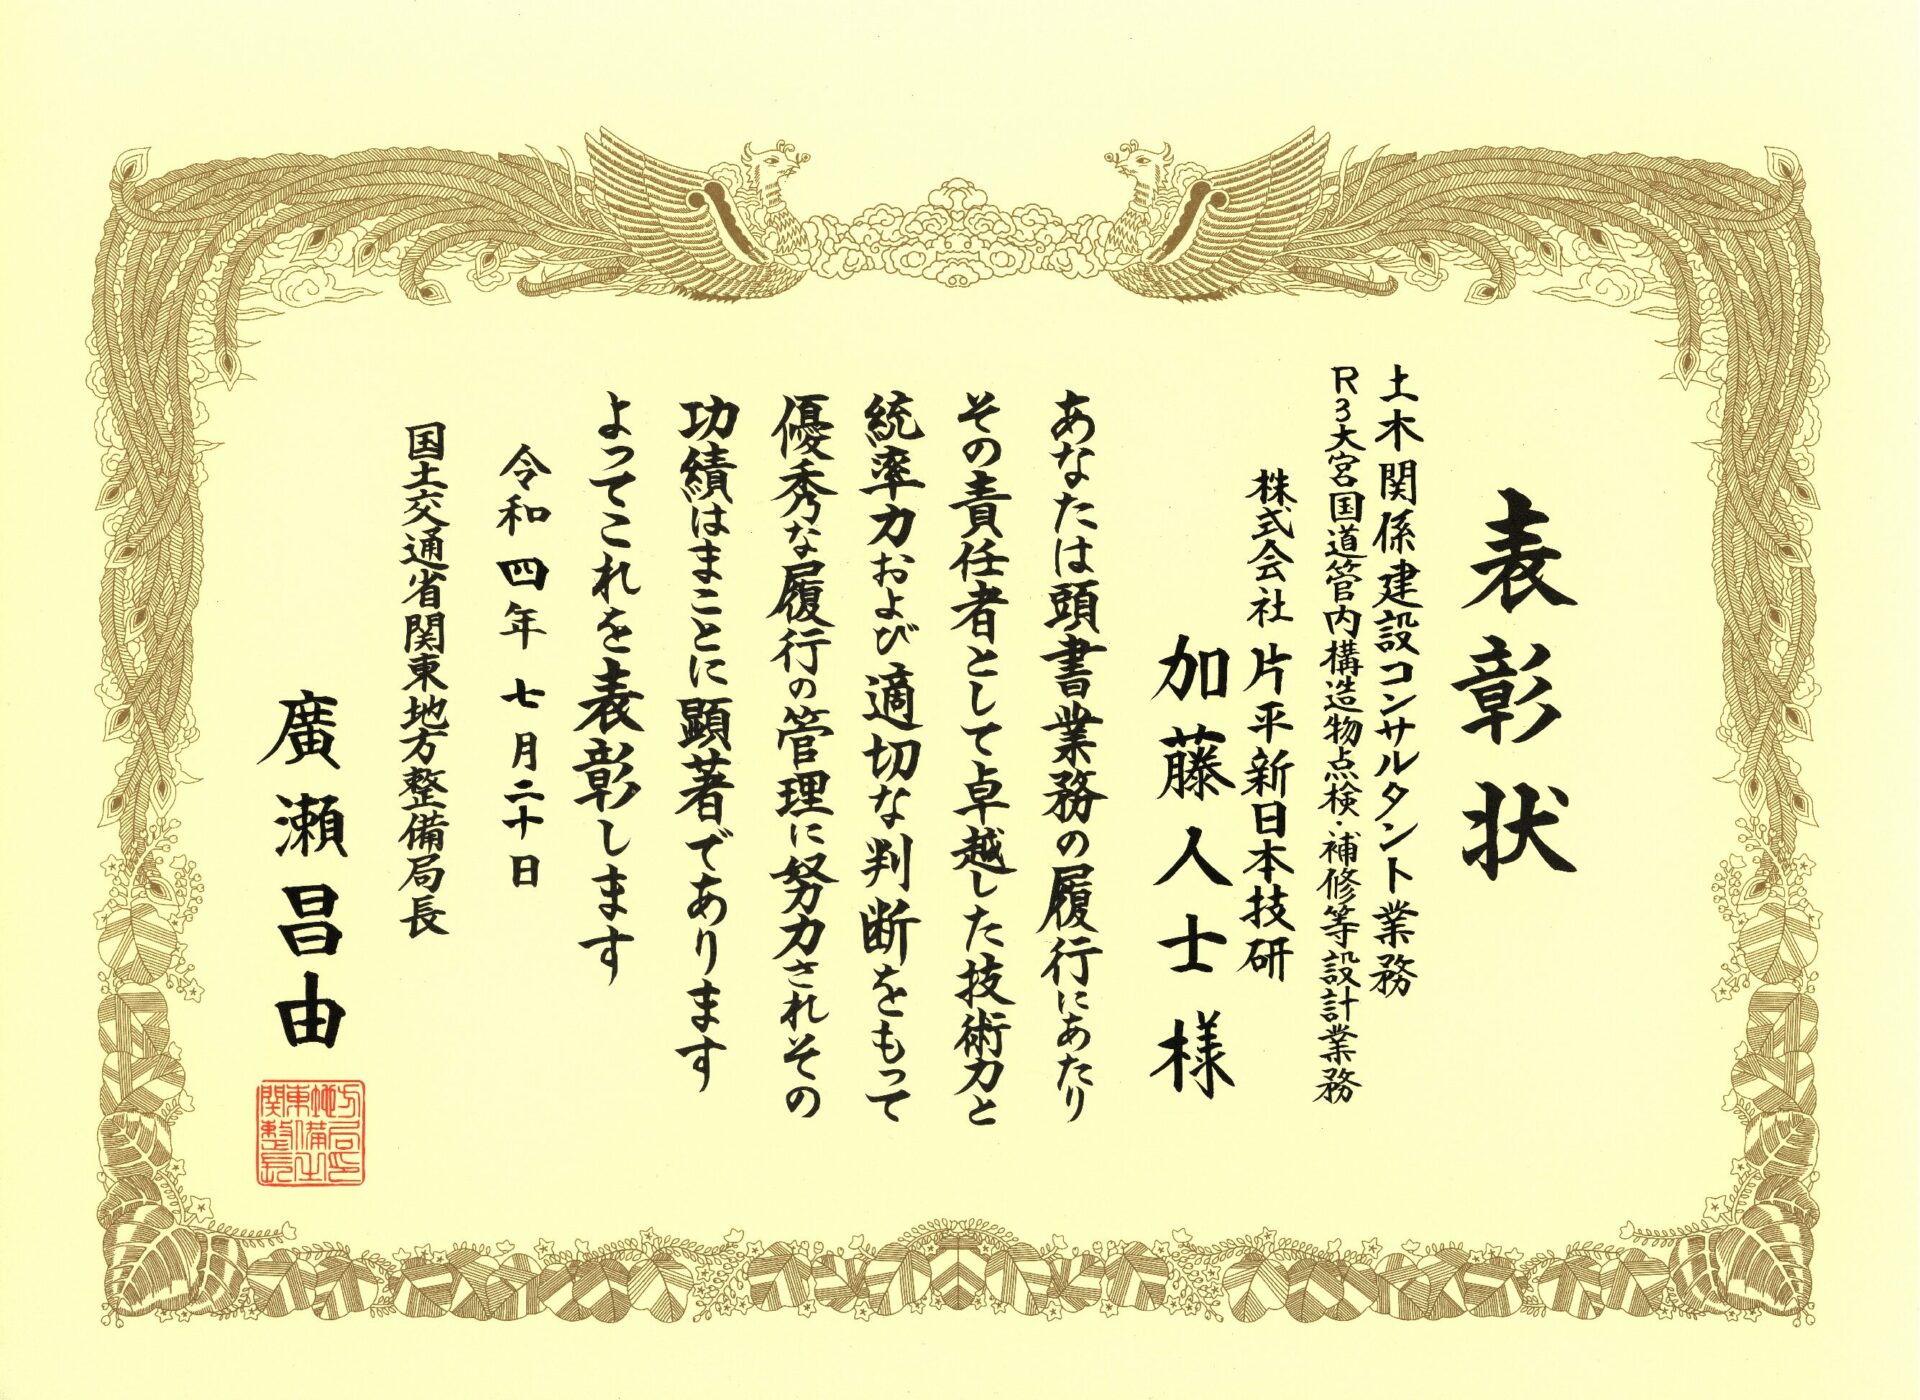 表彰状
土木関係建設コンサルタント業務
R3大宮国道管内構造物点検・補修等設計業務
株式会社片平新日本技研
加藤人士様
あなたは頭書業務の履行にあたり
その責任者として卓越した技術力と
統率力および適切な判断をもって
優秀な履行の管理に努力されその
功績はまことに顕著であります
よってこれを表彰します
令和四年七月二十日
国土交通省関東地方整備局長
廣瀬昌由